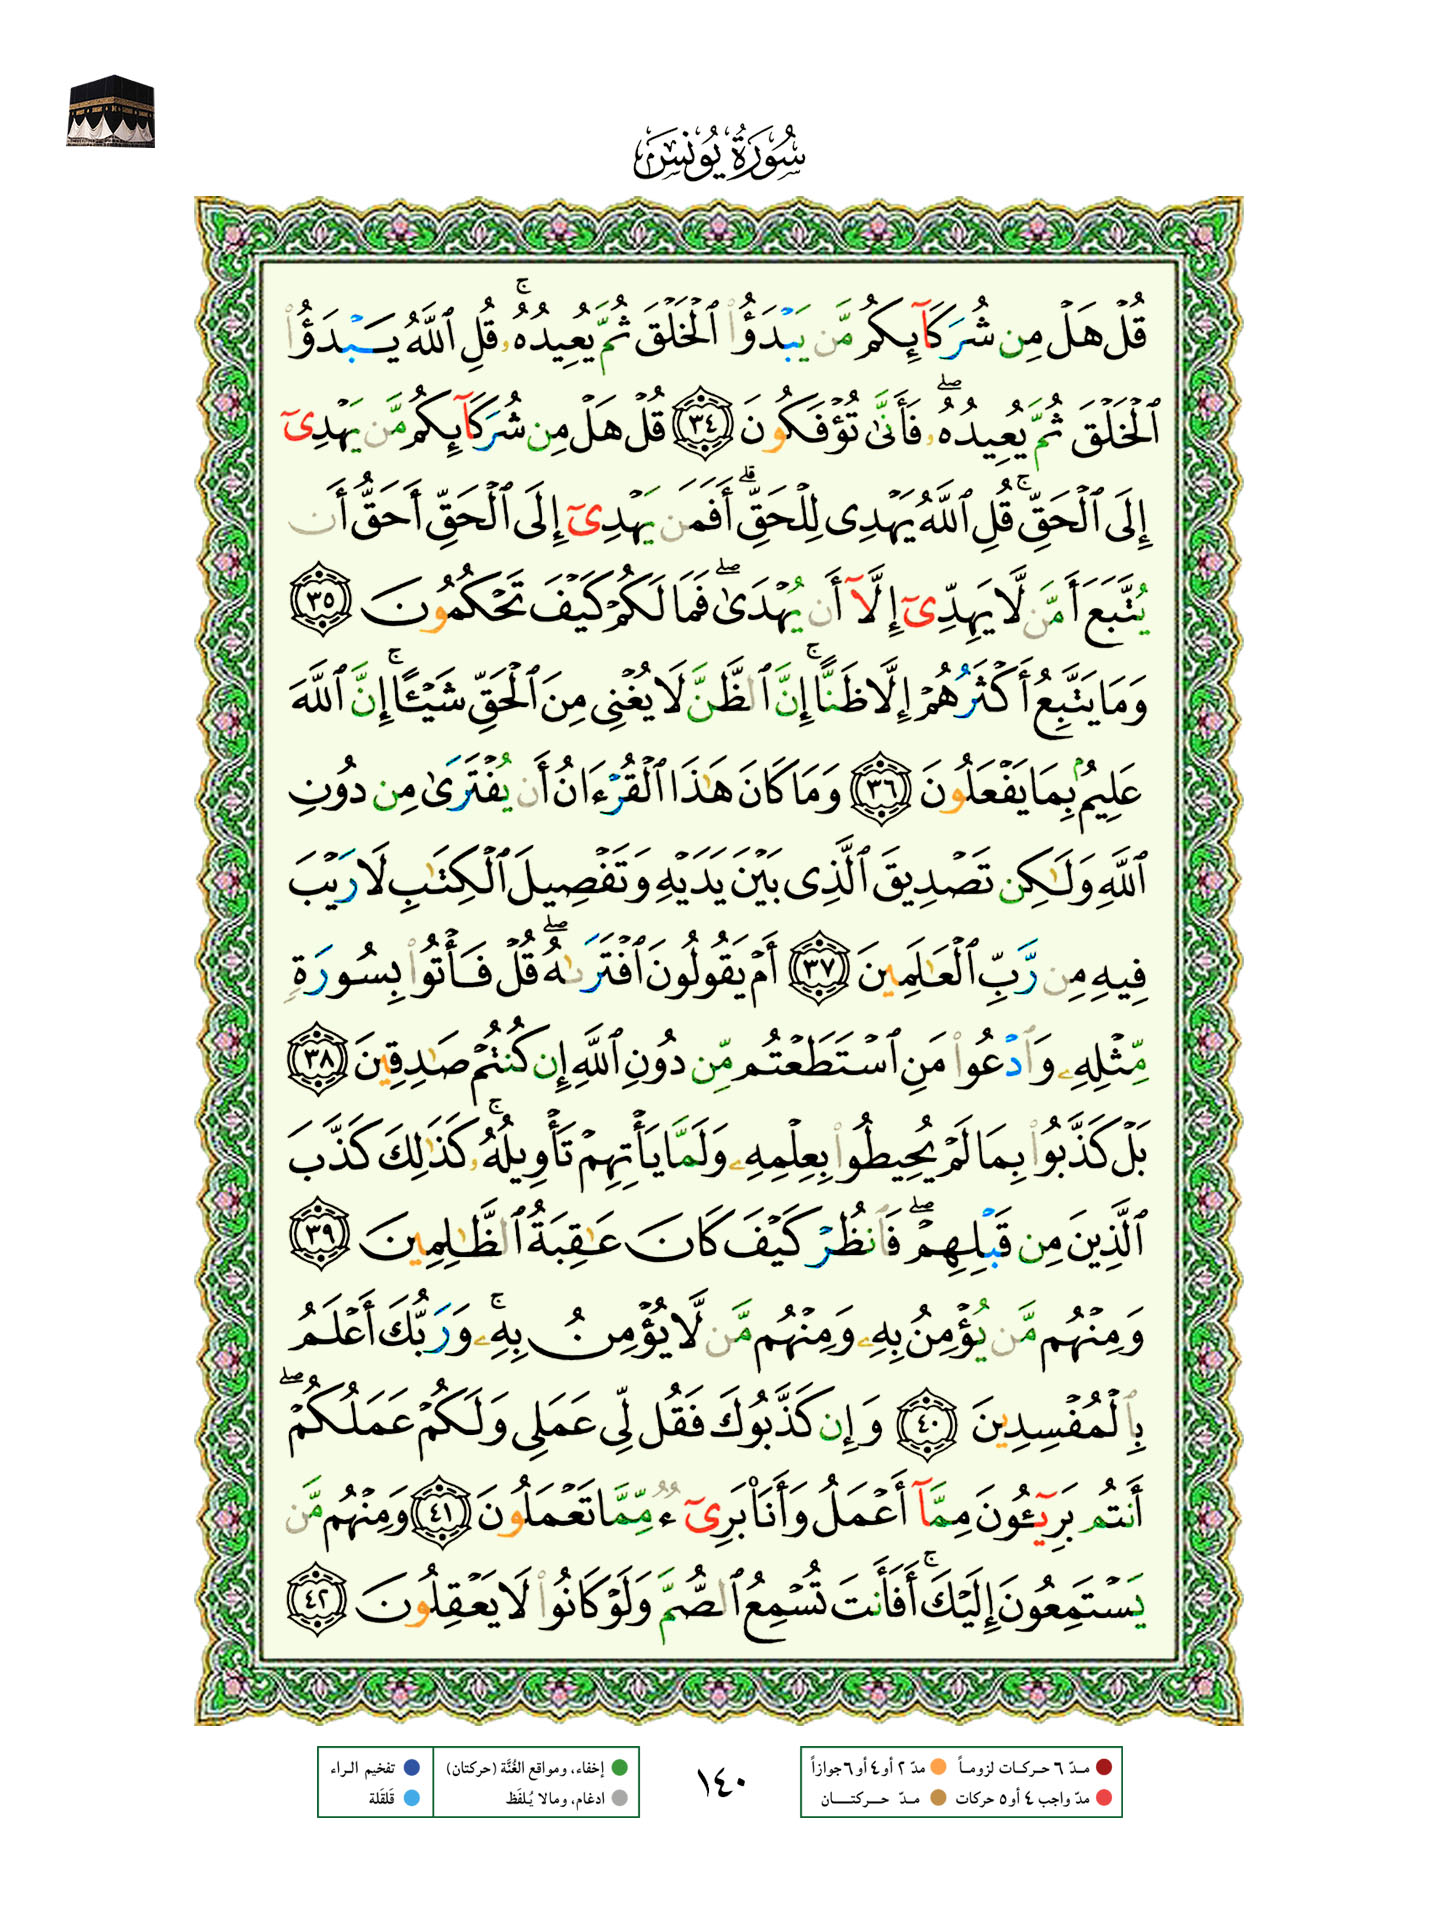 سُورَةُ يُونُسَ
قُلۡ هَلۡ مِن شُرَكَآئِكُم مَّن يَبۡدَؤُاْ ٱلۡخَلۡقَ ثُمَّ يُعِيدُهُۥۚ قُلِ ٱللَّهُ يَبۡدَؤُاْ
ٱلۡخَلۡقَ ثُمَّ يُعِيدُهُۥۖ فَأَنَّىٰ تُؤۡفَكُونَ ٣٤ قُلۡ هَلۡ مِن شُرَكَآئِكُم مَّن يَهۡدِيٓ
إِلَى ٱلۡحَقِّۚ قُلِ ٱللَّهُ يَهۡدِي لِلۡحَقِّۗ أَفَمَن يَهۡدِيٓ إِلَى ٱلۡحَقِّ أَحَقُّ أَن
يُتَّبَعَ أَمَّن لَّا يَهِدِّيٓ إِلَّآ أَن يُهۡدَىٰۖ فَمَا لَكُمۡ كَيۡفَ تَحۡكُمُونَ ٣٥
وَمَا يَتَّبِعُ أَكۡثَرُهُمۡ إِلَّا ظَنًّاۚ إِنَّ ٱلظَّنَّ لَا يُغۡنِي مِنَ ٱلۡحَقِّ شَيۡـًٔاۚ إِنَّ ٱللَّهَ
عَلِيمُۢ بِمَا يَفۡعَلُونَ ٣٦ وَمَا كَانَ هَٰذَا ٱلۡقُرۡءَانُ أَن يُفۡتَرَىٰ مِن دُونِ
ٱللَّهِ وَلَٰكِن تَصۡدِيقَ ٱلَّذِي بَيۡنَ يَدَيۡهِ وَتَفۡصِيلَ ٱلۡكِتَٰبِ لَا رَيۡبَ
فِيهِ مِن رَّبِّ ٱلۡعَٰلَمِينَ ٣٧ أَمۡ يَقُولُونَ ٱفۡتَرَىٰهُۖ قُلۡ فَأۡتُواْ بِسُورَةٖ
مِّثۡلِهِۦ وَٱدۡعُواْ مَنِ ٱسۡتَطَعۡتُم مِّن دُونِ ٱللَّهِ إِن كُنتُمۡ صَٰدِقِينَ ٣٨
بَلۡ كَذَّبُواْ بِمَا لَمۡ يُحِيطُواْ بِعِلۡمِهِۦ وَلَمَّا يَأۡتِهِمۡ تَأۡوِيلُهُۥۚ كَذَٰلِكَ كَذَّبَ
ٱلَّذِينَ مِن قَبۡلِهِمۡۖ فَٱنظُرۡ كَيۡفَ كَانَ عَٰقِبَةُ ٱلظَّٰلِمِينَ ٣٩
وَمِنۡهُم مَّن يُؤۡمِنُ بِهِۦ وَمِنۡهُم مَّن لَّا يُؤۡمِنُ بِهِۦۚ وَرَبُّكَ أَعۡلَمُ
بِٱلۡمُفۡسِدِينَ ٤٠ وَإِن كَذَّبُوكَ فَقُل لِّي عَمَلِي وَلَكُمۡ عَمَلُكُمۡۖ
أَنتُم بَرِيٓـُٔونَ مِمَّآ أَعۡمَلُ وَأَنَا۠ بَرِيٓءٞ مِّمَّا تَعۡمَلُونَ ٤١ وَمِنۡهُم مَّن
يَسۡتَمِعُونَ إِلَيۡكَۚ أَفَأَنتَ تُسۡمِعُ ٱلصُّمَّ وَلَوۡ كَانُواْ لَا يَعۡقِلُونَ ٤٢
مدّ ٦ حركات لزوماً مدّ ٢ أو ٤ أو ٦ جوازاً
مدّ واجب ٤ أو ٥ حركات مدّ حركتان
١٤٠
إخفاء، ومواقع الغُنَّة (حركتان) تفخيم الراء
ادغام، ومالا يُلفَظ قَلقَلة